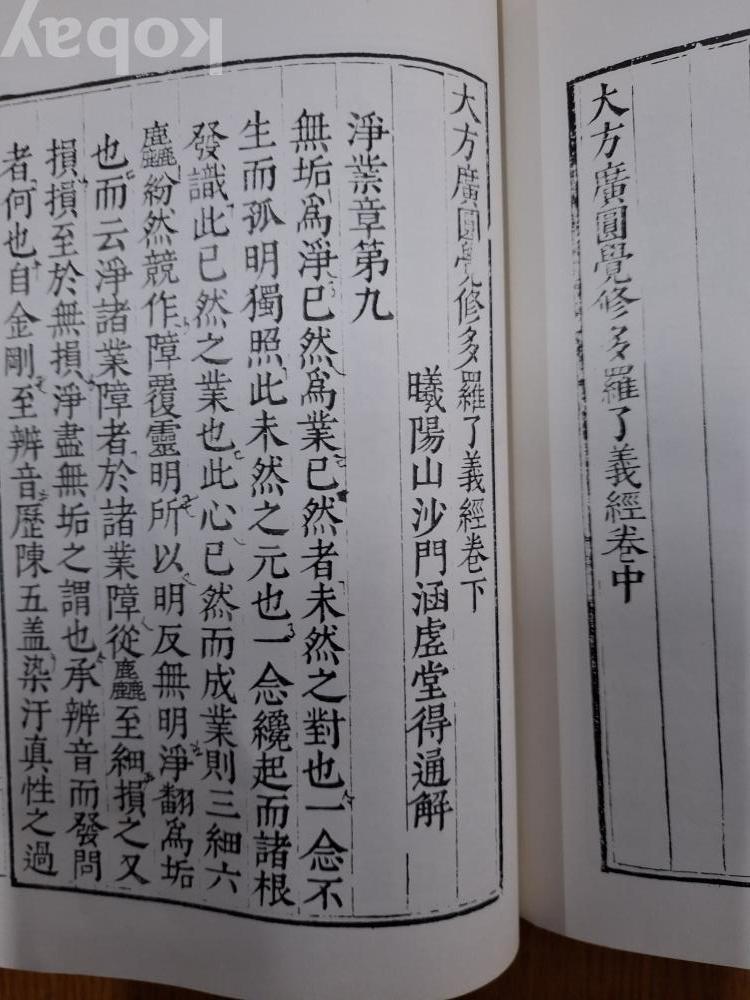 大方廣圓覺修多羅了義經卷中
大方廣圓覺修多羅了義經卷下
曦陽山沙門涵虛堂得通解
淨業章第九
無垢爲淨已然爲業已然者未然之對也一念不
生而孤明獨照此未然之元也一念纔起而諸根
發識此已然之業也此心已然而成業則三細六
麤紛然競作障覆靈明所以明反無明淨翻爲垢
也而云淨諸業障者於諸業障從麤至細損之又
損損至於無損淨盡無垢之謂也承辨音而發問
者何也自金剛至辨音歷陳五盖染汙真性之過
kobay